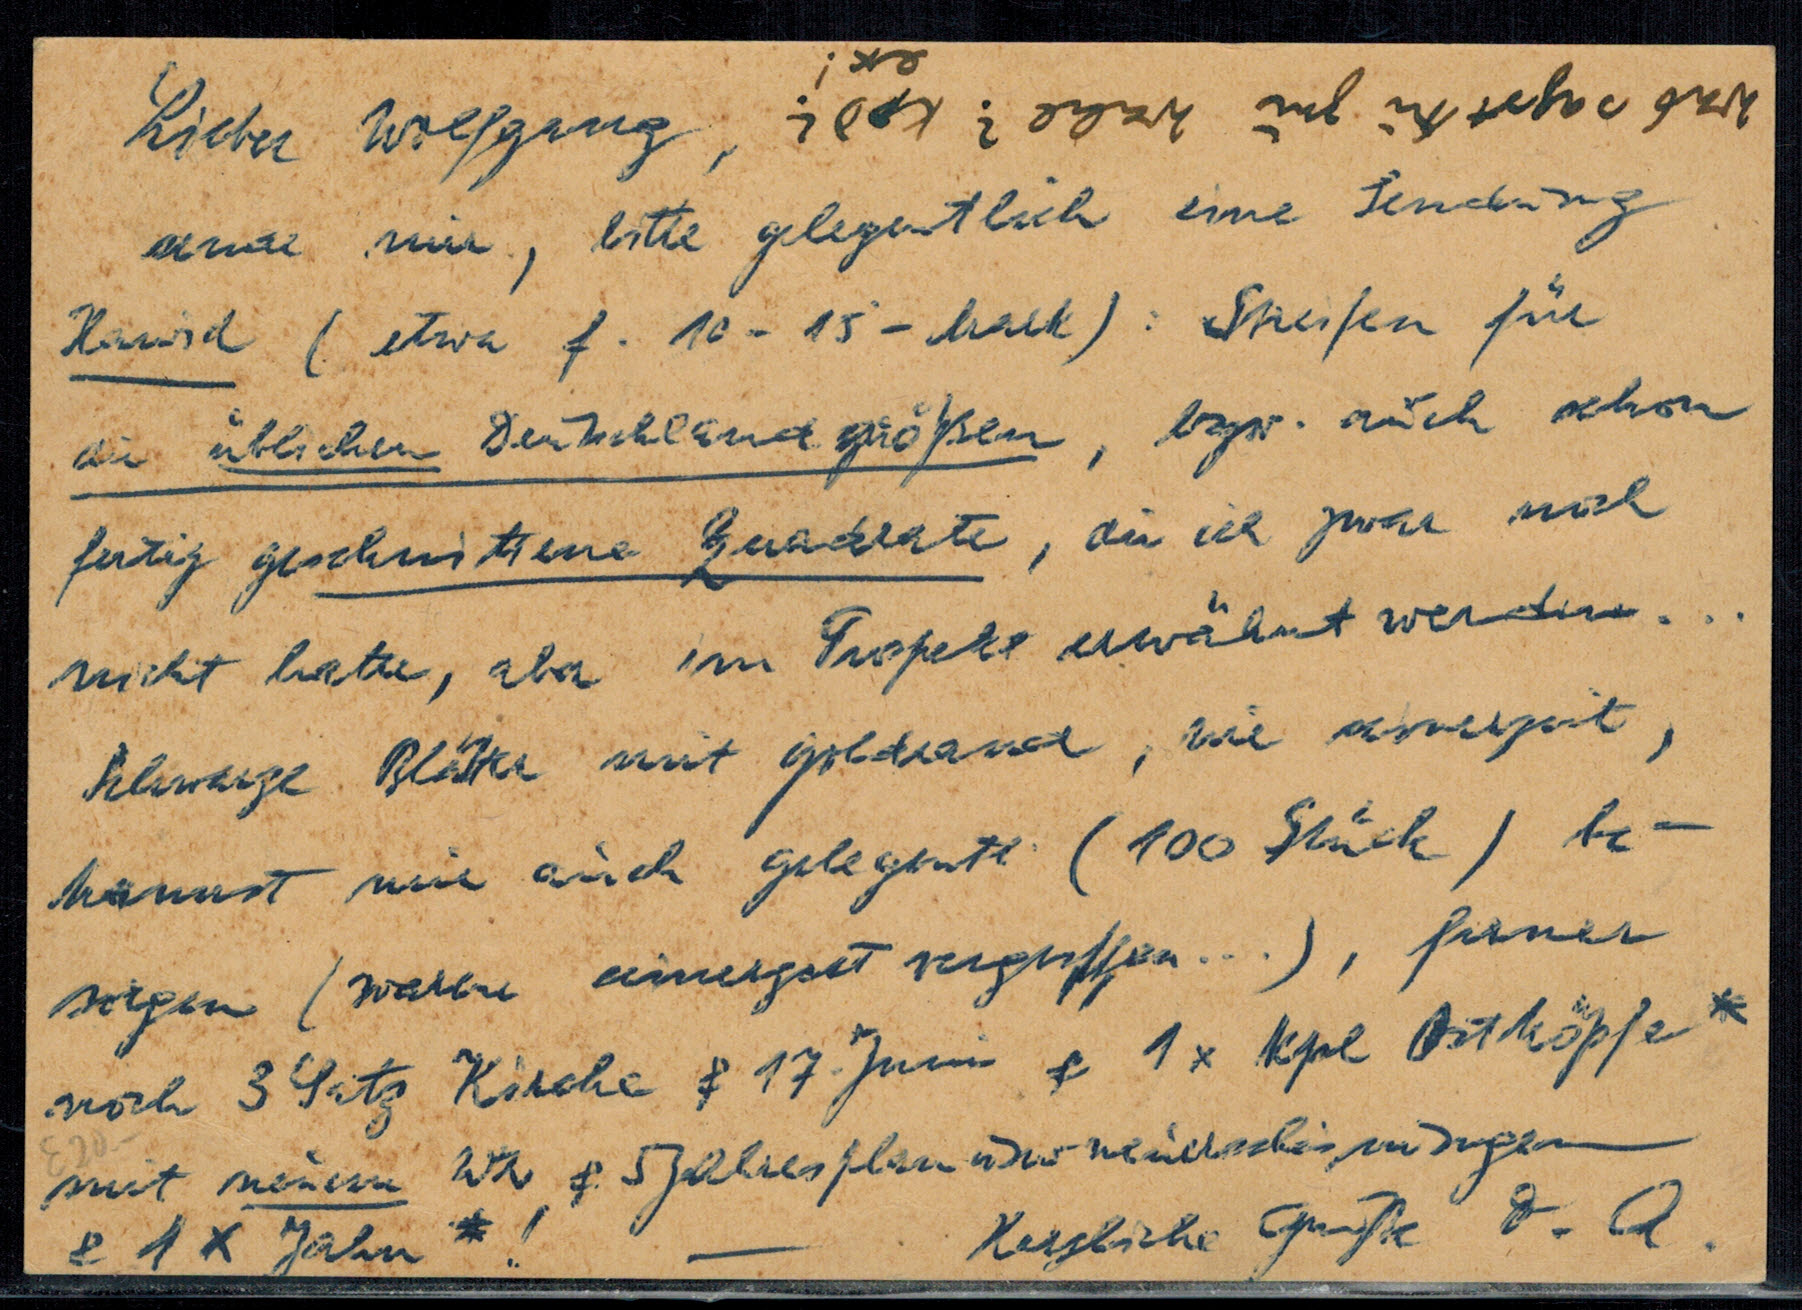 Lieber Wolfgang,
sende mir, bitte gelegentlich eine Sendung
Hawid ( etwa f. 10 - 15 - Mark ) : Streifen für
die üblichen Deutschlandgrößen, bzw. auch schon
fertig geschnittene Quadrate, die ich zwar noch
nicht hatte, aber im Prospekt erwähnt werden...
Schwarze Blätter mit Goldrand, wie seinerzeit,
kannst mir auch gelegentl. (100 Stück) be-
sorgen (waren seinerzeit vergriffen...), ferner
noch 3 Satz Kirche & 17. Juni & 1 x kpl Ostköpfe *
mit neuem Wz & 5 Jahresplan
& 1 x Jahn * ! — Herzliche Grüße D. A.
was sagst Du zur